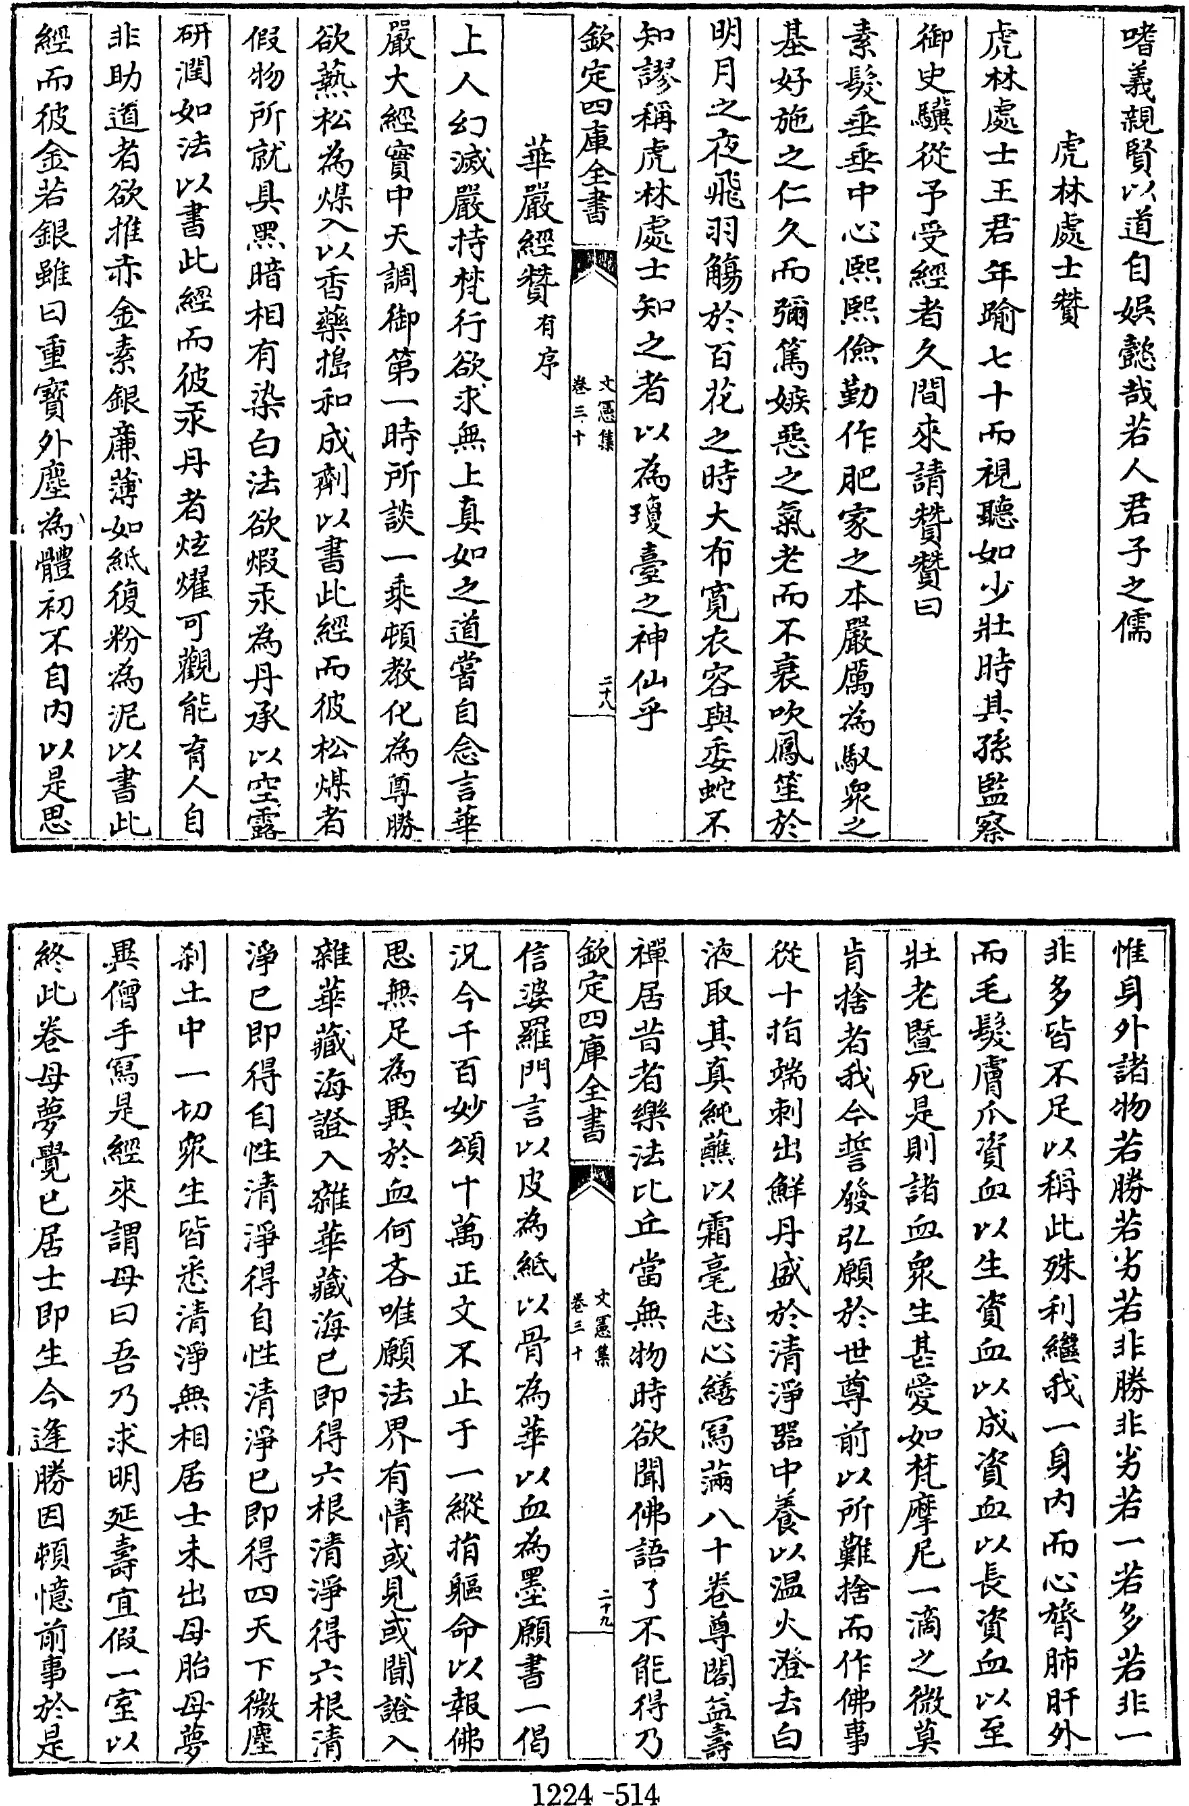 嗜義親賢以道自娛懿哉若人君子之儒
虎林處士贊
虎林處士王君年踰七十而視聽如少壯時其孫監察
御史驥從予受經者久間來請贊贊曰
素髮垂垂中心熙熙儉勤作肥家之本嚴厲為馭衆之
基好施之仁久而彌篤嫉惡之氣老而不衰吹鳳笙於
明月之夜飛羽觴於百花之時大布寛衣容與委蛇不
知謬稱虎林處士知之者以為瓊臺之神仙乎
欽定四庫全書
文憲集
卷三十
二十八
華嚴經贊有序
上人幻滅嚴持梵行欲求無上真如之道嘗自念言華
嚴大經實中天調御第一時所談一乘頓教化為尊勝
欲爇松為煤入以香藥搗和成劑以書此經而彼松煤者
假物所就具黑暗相有染白法欲煅汞為丹承以空露
研潤如法以書此經而彼汞丹者炫燿可觀能育人自
非助道者欲推赤金素銀亷薄如紙復粉為泥以書此
經而彼金若銀雖曰重寳外塵為體初不自内以是思
惟身外諸物若勝若劣若非勝非劣若一若多若非一
非多皆不足以稱此殊利繼我一身内而心膂肺肝外
而毛髮膚爪資血以生資血以成資血以長資血以至
壯老暨死是則諸血衆生甚愛如梵摩尼一滴之微莫
肯捨者我今誓發弘願於世尊前以所難捨而作佛事
從十指端刺出鮮丹盛於清淨器中養以温火澄去白
液取其真純蘸以霜毫志心繕寫滿八十卷尊閣益壽
禪居昔者樂法比丘當無物時欲聞佛語了不能得乃
欽定四庫全書
文憲集
卷三十
二十九
信婆羅門言以皮為紙以骨為華以血為墨願書一偈
況今千百妙頌十萬正文不止于一縱捐軀命以報佛
思無足為異於血何吝唯願法界有情或見或聞證入
雜華藏海證入雜華藏海已即得六根清淨得六根清
淨已即得自性清淨得自性清淨已即得四天下微塵
刹土中一切衆生皆悉清淨無相居士未出母胎母夢
異僧手寫是經來謂母曰吾乃求明延壽宜假一室以
終此卷母夢覺已居士即生今逢勝因頓憶前事於是
1224-514